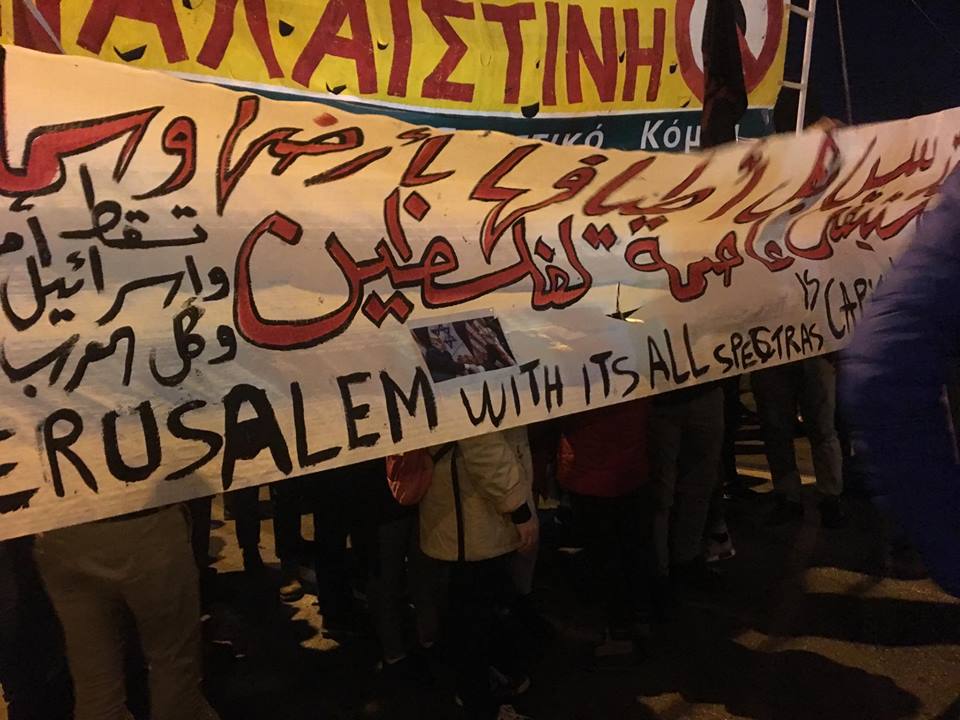 ΠΑΛΑΙΣΤΙΝΗ
Κόμ
بأرضها وسما
بأطيافها
ستبقى عاصمة لفلسطين
تسقط أم
واسرائيل
وكل العرب
ERUSALEM WITH ITS ALL SPECTRAS IS CAP